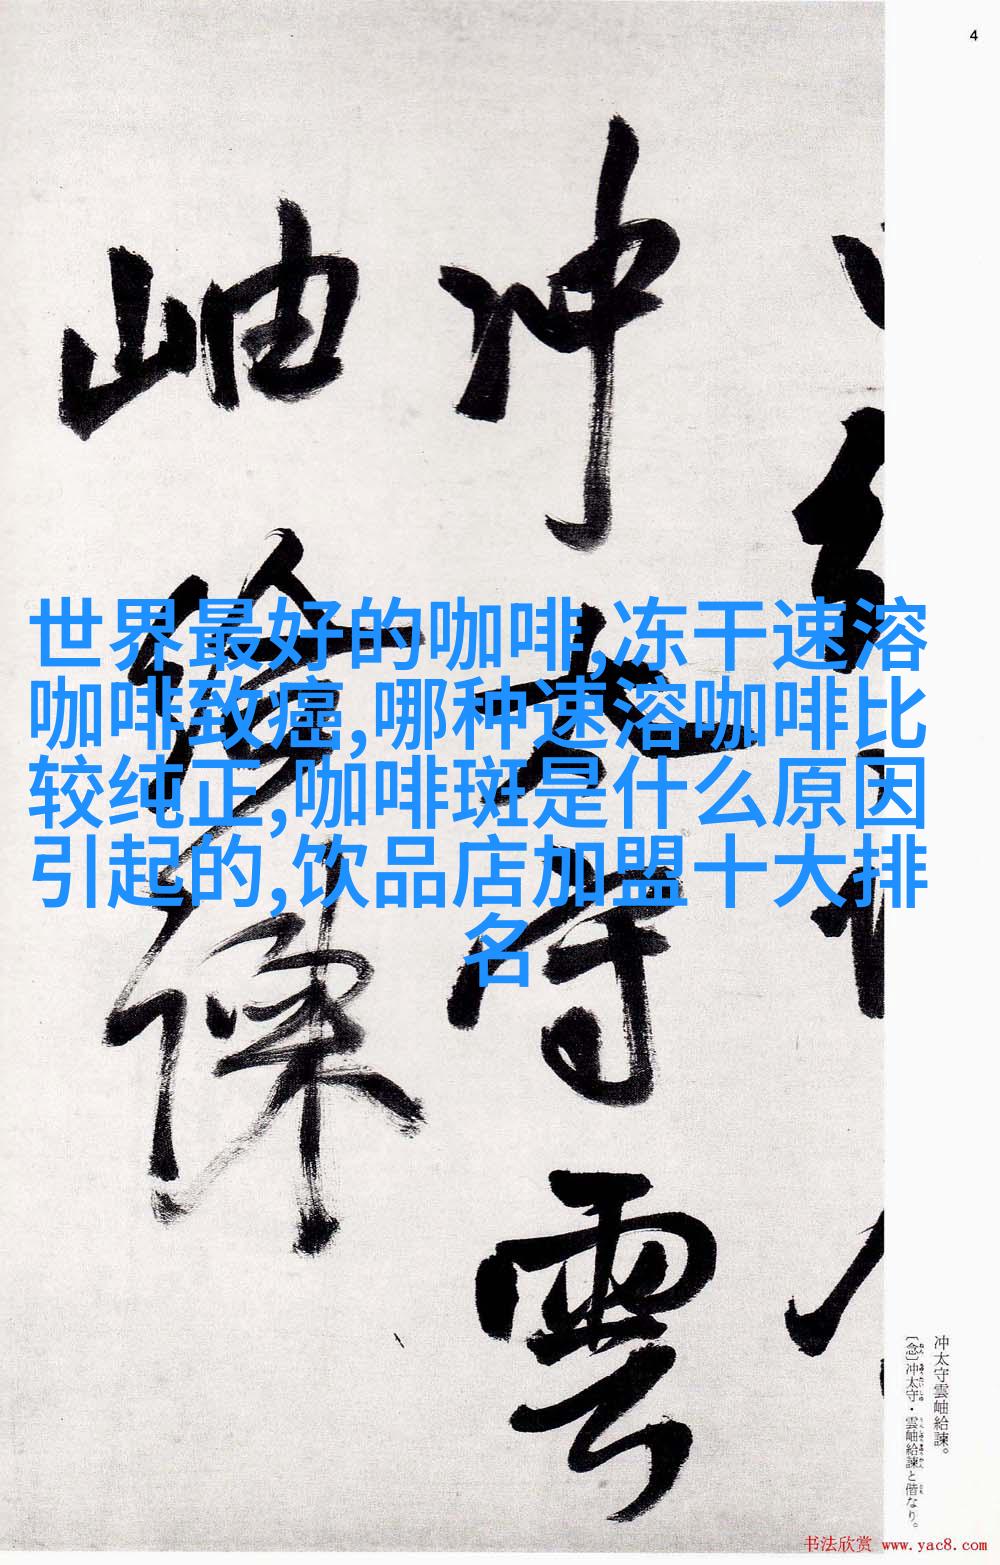 4
冲太守雲
岫給諫
世界最好的咖啡,冻干速溶
咖啡致癌,哪种速溶咖啡比
较纯正,咖啡斑是什么原因
引起的,饮品店加盟十大排
名
冲太守雲岫給諫。
〔念〕冲太守・雲岫給諫と偕なり。
书法欣赏 www.yac8.com